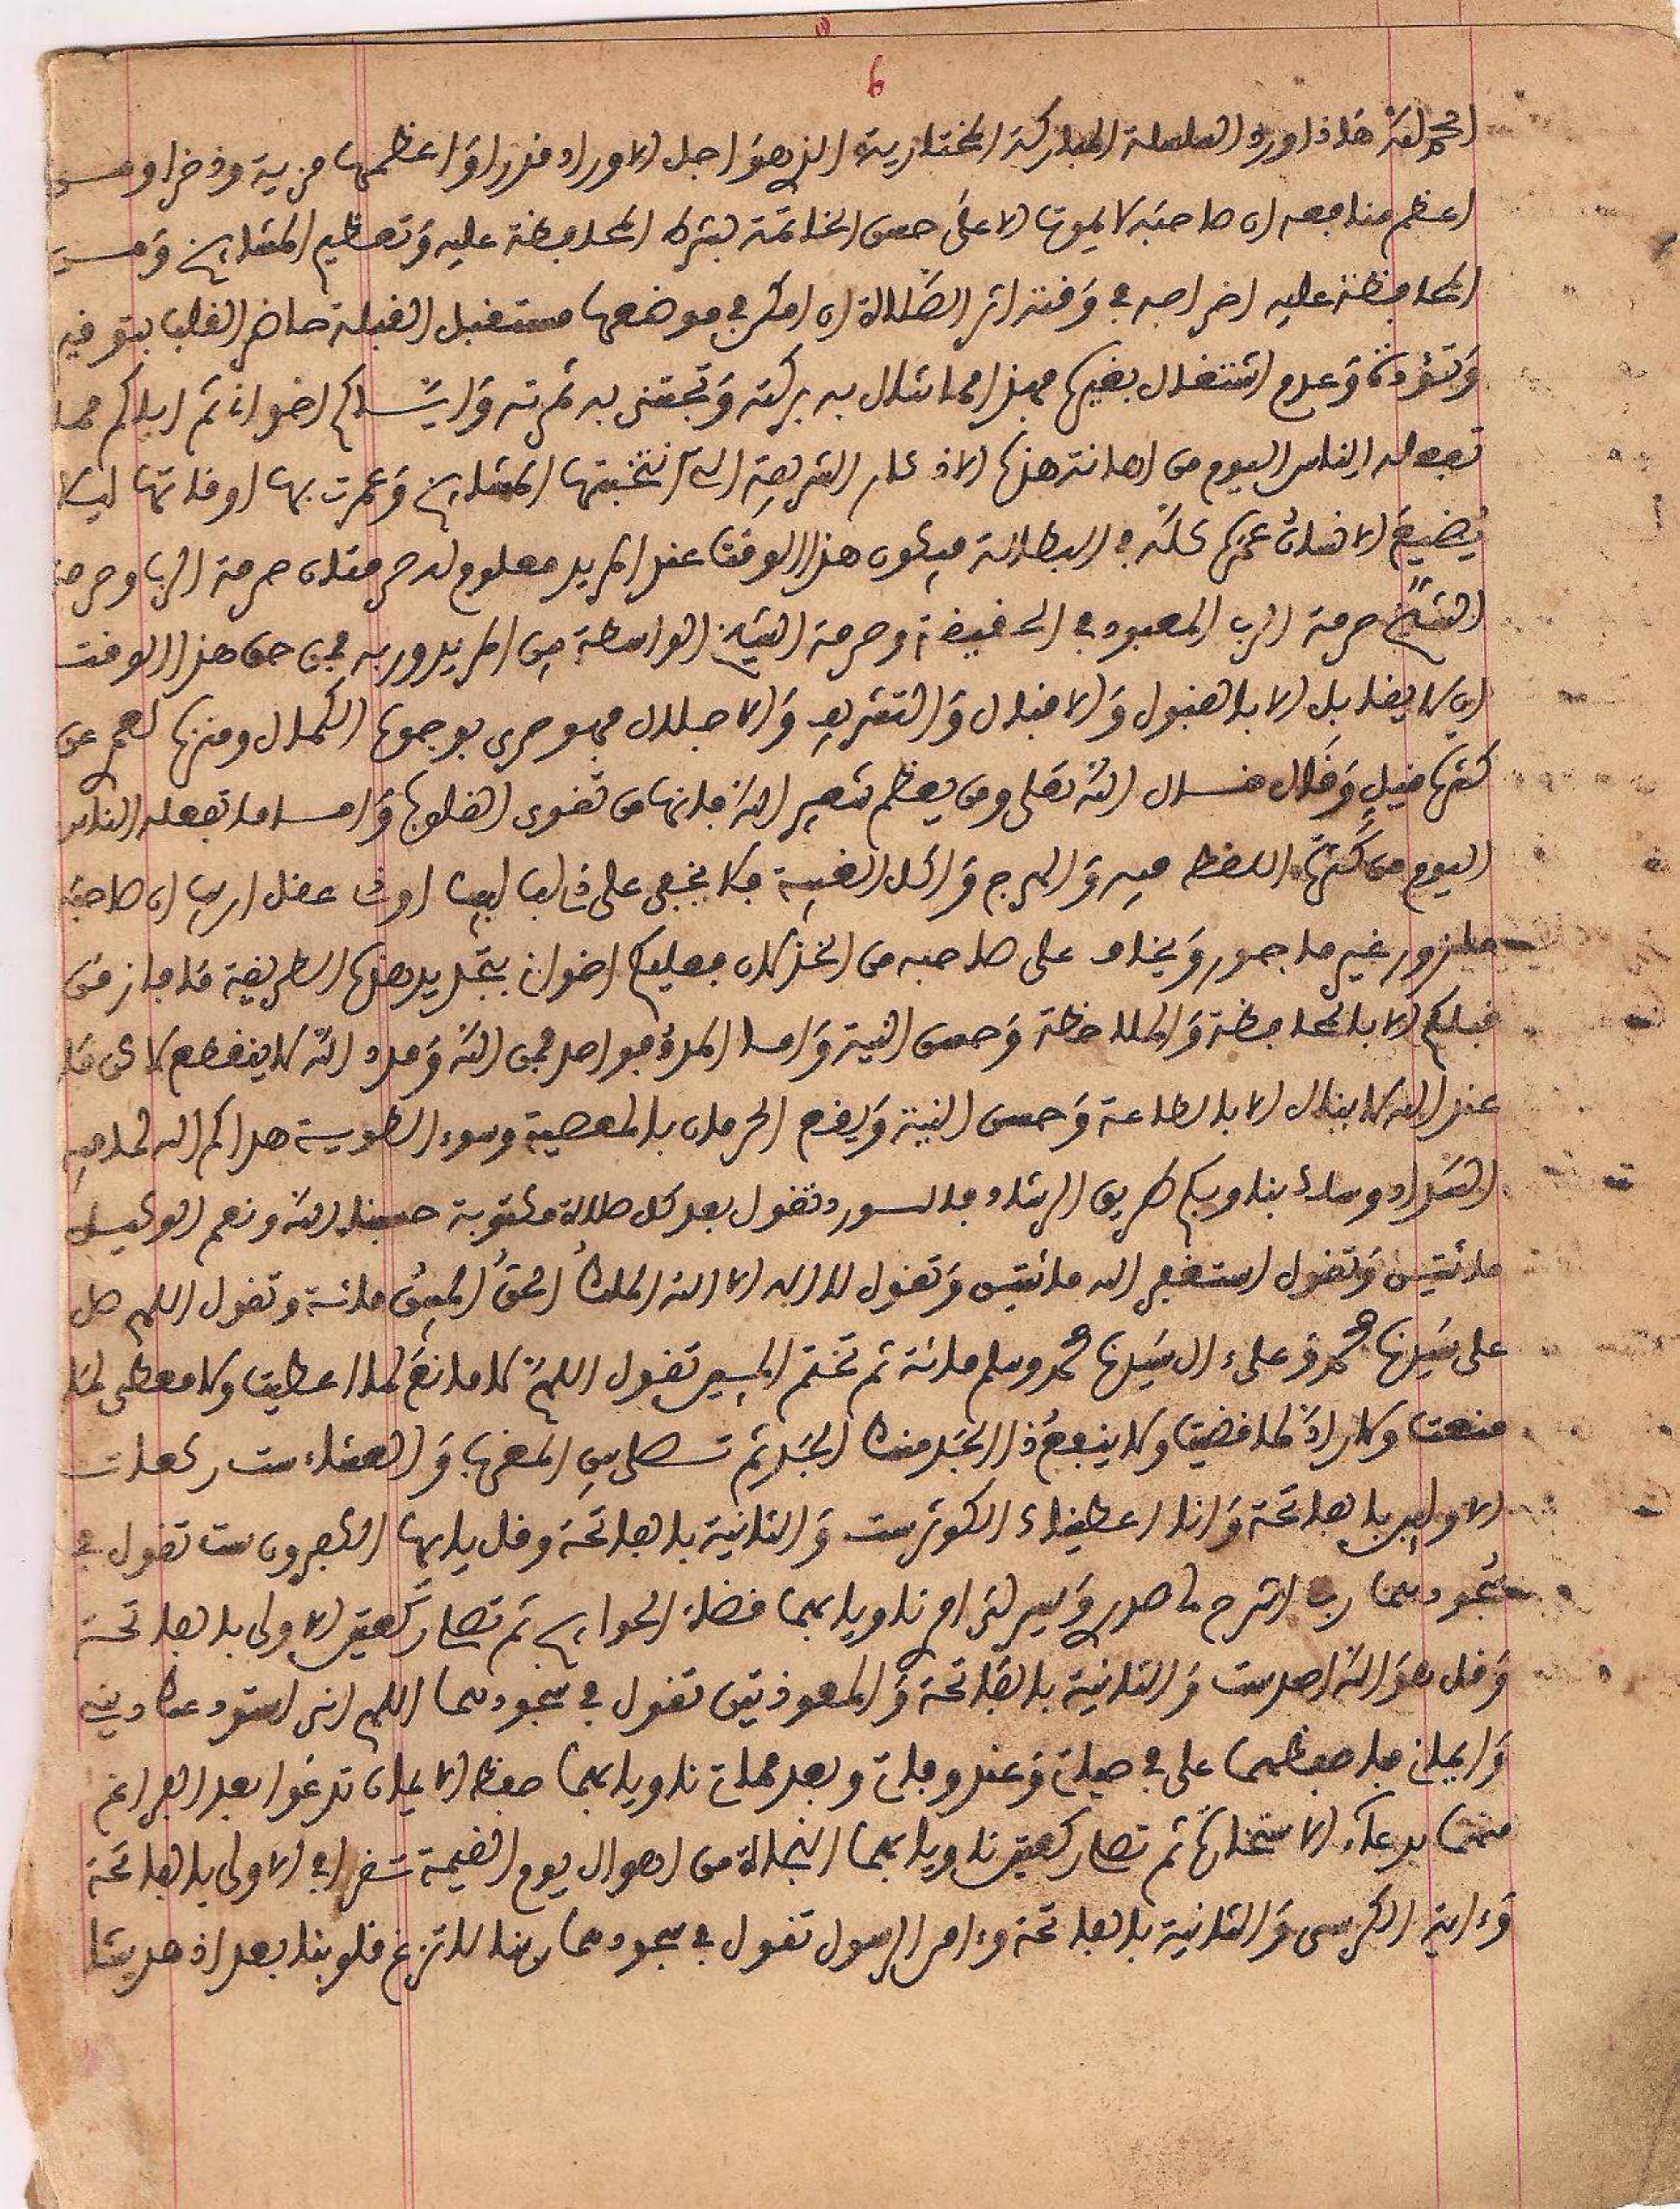 6
الحمد لله هذا ورد السلسلة المباركة المختارية الذي هو اجل الاوراد قدرا واعظمها مزية وذخرا ومن
اعظم منافعه ان صاحبه لا يموت الا على حسن الخاتمة بشرط المحافظة عليه وتعظيم المشايخ ومن
المحافظة عليه اخراجه في وقته اثر الصلاة ان امكن في موضعها مستقبل القبلة حاضر القلب بتوفيه
وتؤدة وعدم اشتغال بغيره فبهذا مما تنال به بركته وتجتنى به ثمرته واياكم اخواني ثم اياكم مما
تفعله الناس اليوم من اهانة هذه الاذكار الشريفة التي انتخبتها المشايخ وعمرت بها اوقاتها ليلا
يضيع الانسان عمره كله في البطالة فيكون هذا الوقت عند المريد معلوم له حرمتان حرمة الرب وحرمة
الشيخ حرمة الرب المعبود في الحقيقة وحرمة الشيخ الواسطة بين المريد وربه فمن حق هذا الوقت
ان لا يقابل الا بالقبول والاقبال والتشريف والاجلال فهو حري بوجوه الكمال ومنزه لعمر عن
كثرة قيل وقال قال الله تعلى ومن يعظم شعير الله فانها من تقوى القلوب واما ما تفعله الناس
اليوم من كثرة اللفظ فيه والهرج واكل الغيبة فلا يخفى على ذي لب لبيب او ذي عقل اريب ان صاحبه
مازور غير ماجور ويخاف على صاحبه من الخذلان فعليكم اخواني بتجديد هذه الطريقة فما فاز من
قبلكم الا بالمحافظة والملاحظة وحسن النية واما المدد فواحد فمن الله ومدد الله لا ينقطع لاكن ما
عند الله لا ينال الا بالطاعة وحسن النية ويقع الحرمان بالمعصية وسوء الطوية هداكم الله لما فيه
السداد وسلك بنا وبكم طريق الرشاد فالورد تقول بعد كل صلاة مكتوبة حسبنا الله ونعم الوكيل
مائتين وتقول استغفر الله مائتين وتقول لا اله الا الله الملك الحق المبين مائة وتقول اللهم صل
على سيدنا محمد وعلى ال سيدنا محمد وسلم مائة ثم تختم المين تقول اللهم لا مانع لما اعطيت ولا معطي لما
منعت ولا راد لما قضيت ولا ينفع ذا الجد منك الجد ثم تصلي بين المغرب والعشاء ست ركعات
الاوليين بالفاتحة وانا اعطيناك الكوثر ست والثانية بالفاتحة وقل يا ايها الكفرون ست تقول في
سجودهما رب اشرح لي صدري ويسر لي امري ناويا بهما قضاء الحوايج ثم تصلي ركعتين الاولى بالفاتحة
وقل هو الله احد ست والثانية بالفاتحة والمعوذتين تقول في سجودهما اللهم اني استودعك ديني
وايماني فاحفظهما علي في حياتي وعند وفاتي وبعد مماتي ناويا بهما حفظ الايمان تدعوا بعد الفراغ
منهما بدعاء الاستخارة ثم تصلي ركعتين ناويا بهما النجاة من اهوال يوم القيمة تقرا في الاولى بالفاتحة
وءاية الكرسي والثانية بالفاتحة وءامن الرسول تقول في سجودهما ربنا لا تزغ قلوبنا بعد اذ هديتنا